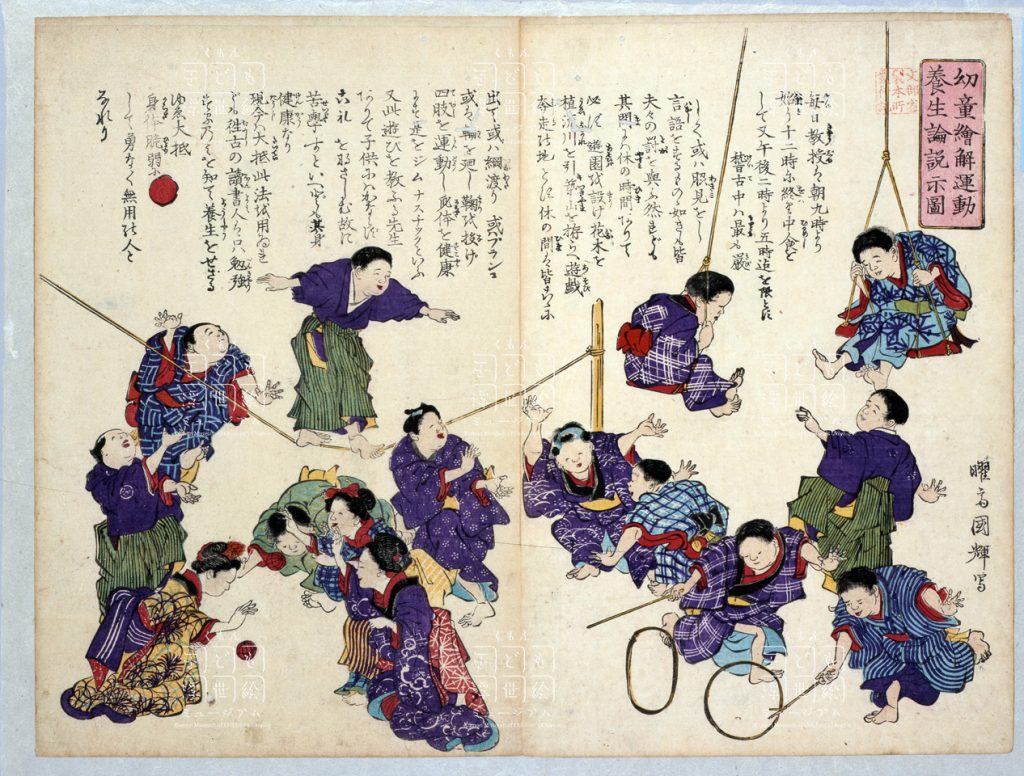 幼童繪解運動
養生論説示圖
文部省
製本所
發行記
毎日教授ハ朝九時より
始り十二時に終り中食を
して又午後二時より五時迄を限とす
稽古中ハ最も嚴
しく或ハ脇見をし
言語をするもの如きハ皆
夫々の罰を與ふ然れども
其間々休の時間ありて
必ず遊園を設け花木を
植流川を引築山を拵らへ遊戯
奔走の地とす休の間ハ皆こゝに
出て或ハ綱渡り或ブランコ
或ハ輪を廻し鞠を投け
四肢を運動し身体を健康
にす是をジムナスチックといふ
又此遊びを教ふる先生
ありて子供にハかならず
これを為さしむ故に
苦學すといへども其身
健康なり
現今ハ大抵此法を用
往古の讀書人ハ只勉強
するのミを知て養生をせざる
ゆゑ大抵
身体脆弱に
して勇なく無用の人と
なれり
曜斎國輝写
くもん
子ども
浮世絵
ミュージアム